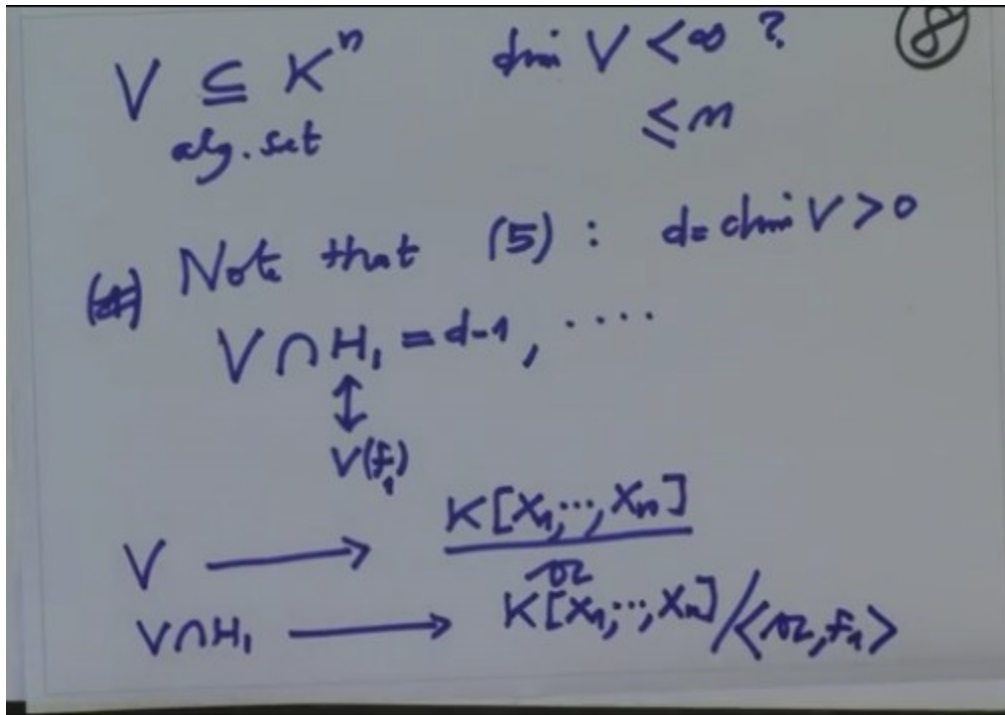 ⑧
V ⊆ K^n dim V < ∞ ?
alg. set ≤ n
Note that (5) : d = dim V > 0
V ∩ H_1 = d-1, ....
↕
V(f_1)
V ⟶ K[X_1, ..., X_n] / 𝔞
V ∩ H_1 ⟶ K[X_1, ..., X_n] / <𝔞, f_1>